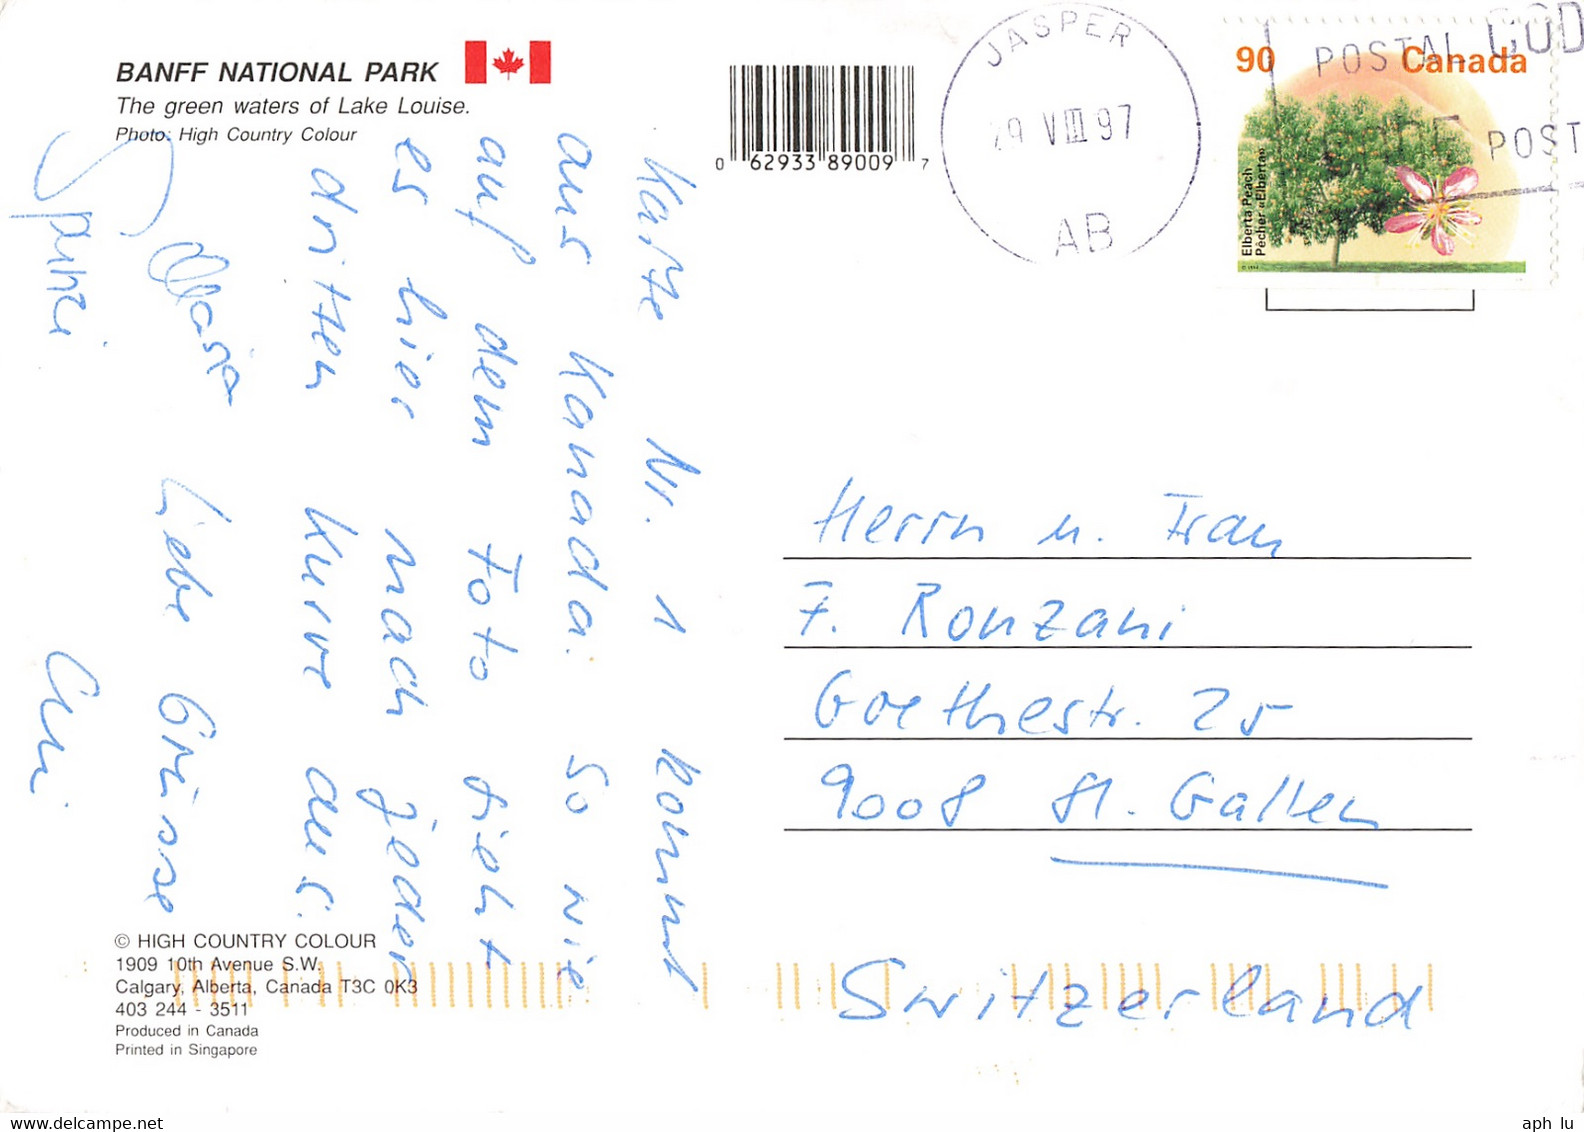 BANFF NATIONAL PARK
The green waters of Lake Louise.
Photo: High Country Colour
0 62933 89009 7
JASPER
29 VIII 97
AB
POSTAL COD
POST
90
Canada
Elberta Peach
Pêcher «Elberta»
Karte Nr. 1 kommt
aus Kanada. So wie
auf dem Foto sieht
es hier nach jeder
dritten Kurve aus.
Liebe Grüsse
Herrn u. Frau
F. Ronzani
Goethestr. 25
9008 St. Gallen
Switzerland
© HIGH COUNTRY COLOUR
1909 10th Avenue S.W.
Calgary, Alberta, Canada T3C 0K3
403 244 - 3511
Produced in Canada
Printed in Singapore
aph lu